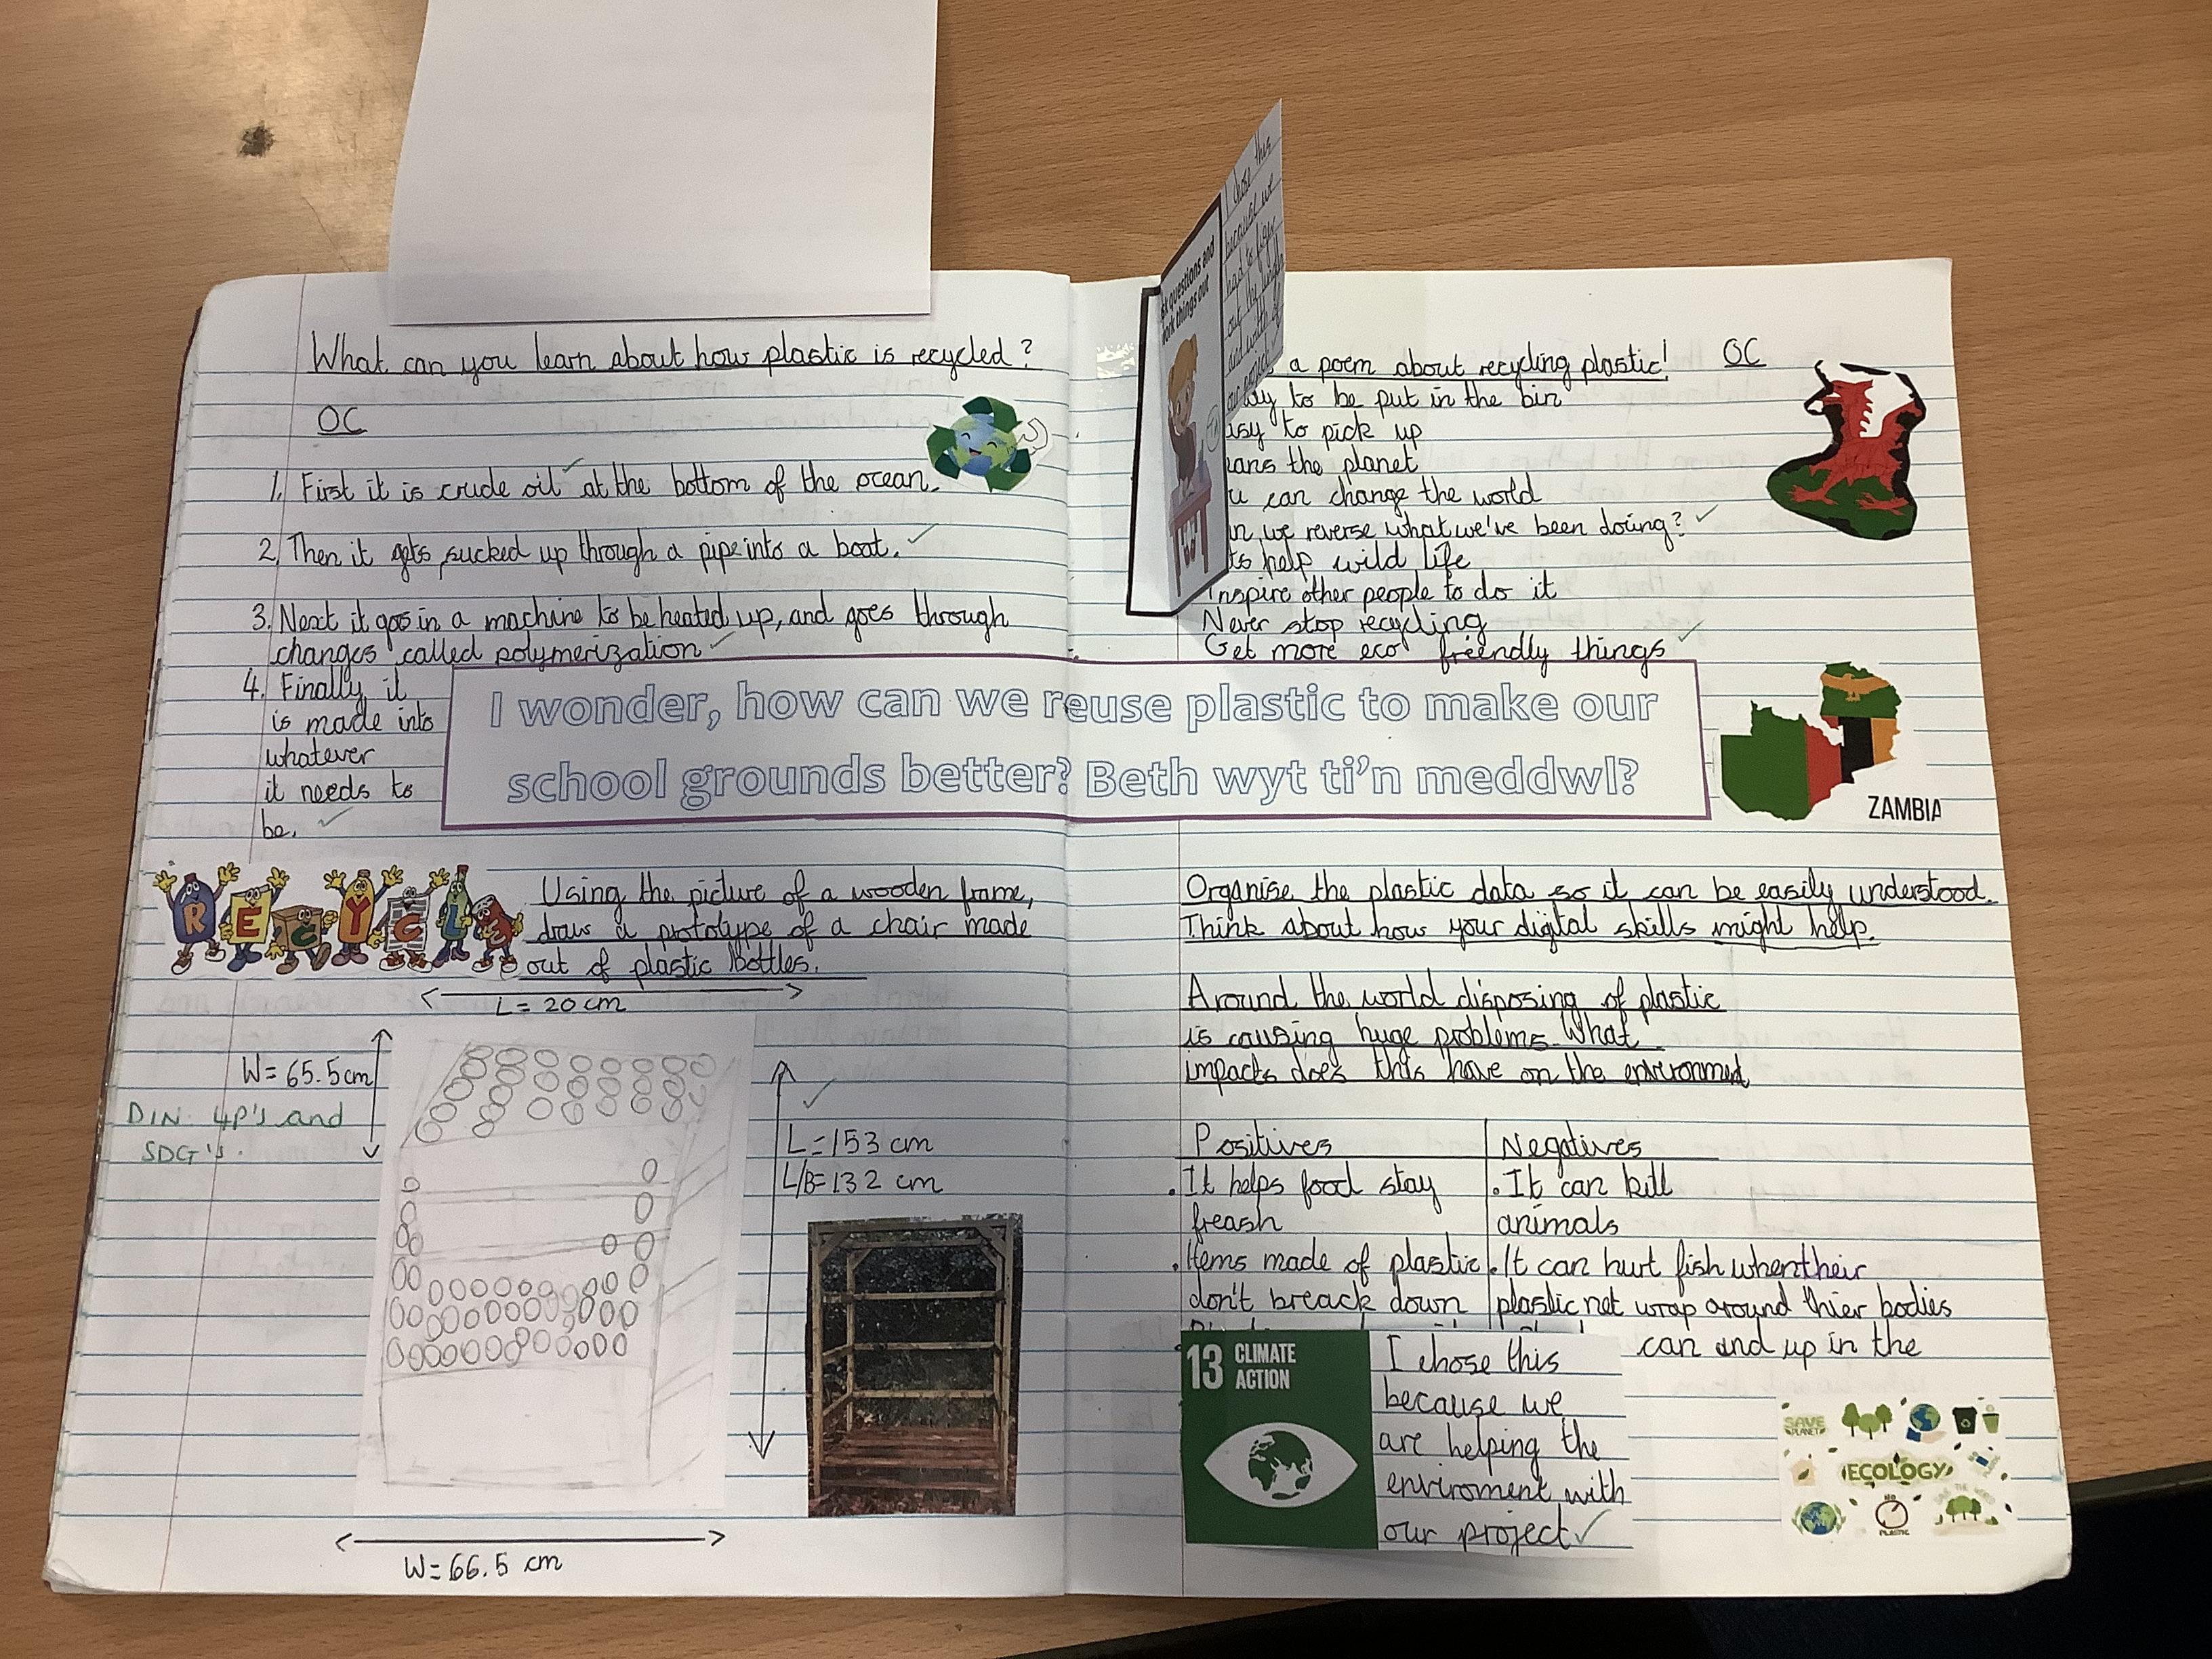 What can you learn about how plastic is recycled?
OC
1. First it is crude oil at the bottom of the ocean.
2. Then it gets sucked up through a pipe into a boat.
3. Next it goes in a machine to be heated up, and goes through
changes called polymerization
4. Finally it
is made into
whatever
it needs to
be.
I wonder, how can we reuse plastic to make our
school grounds better? Beth wyt ti'n meddwl?
RECYCLE
Using the picture of a wooden frame,
draw a prototype of a chair made
out of plastic bottles.
L = 20 cm
W = 65.5 cm
DIN: 4P's and
SDG's.
L = 153 cm
L/B = 132 cm
W = 66.5 cm
questions and
work things out
I chose this
because we
had to figer
out the length
and width of
our project
a poem about recycling plastic!
OC
to be put in the bin
to pick up
the planet
can change the world
we reverse what we've been doing?
help wild life
Inspire other people to do it
Never stop recycling
Get more eco friendly things
ZAMBIA
Organise the plastic data so it can be easily understood.
Think about how your digital skills might help.
Around the world disposing of plastic
is causing huge problems. What
impacts does this have on the enviroment
Positives
Negatives
. It helps food stay
freash
. Items made of plastic
don't breack down
. It can kill
animals
. It can hurt fish when their
plastic net wrap around thier bodies
can end up in the
13 CLIMATE
ACTION
I chose this
because we
are helping the
enviroment with
our project
SAVE
PLANET
ECOLOGY
NO
PLASTIC
SAVE THE WORLD